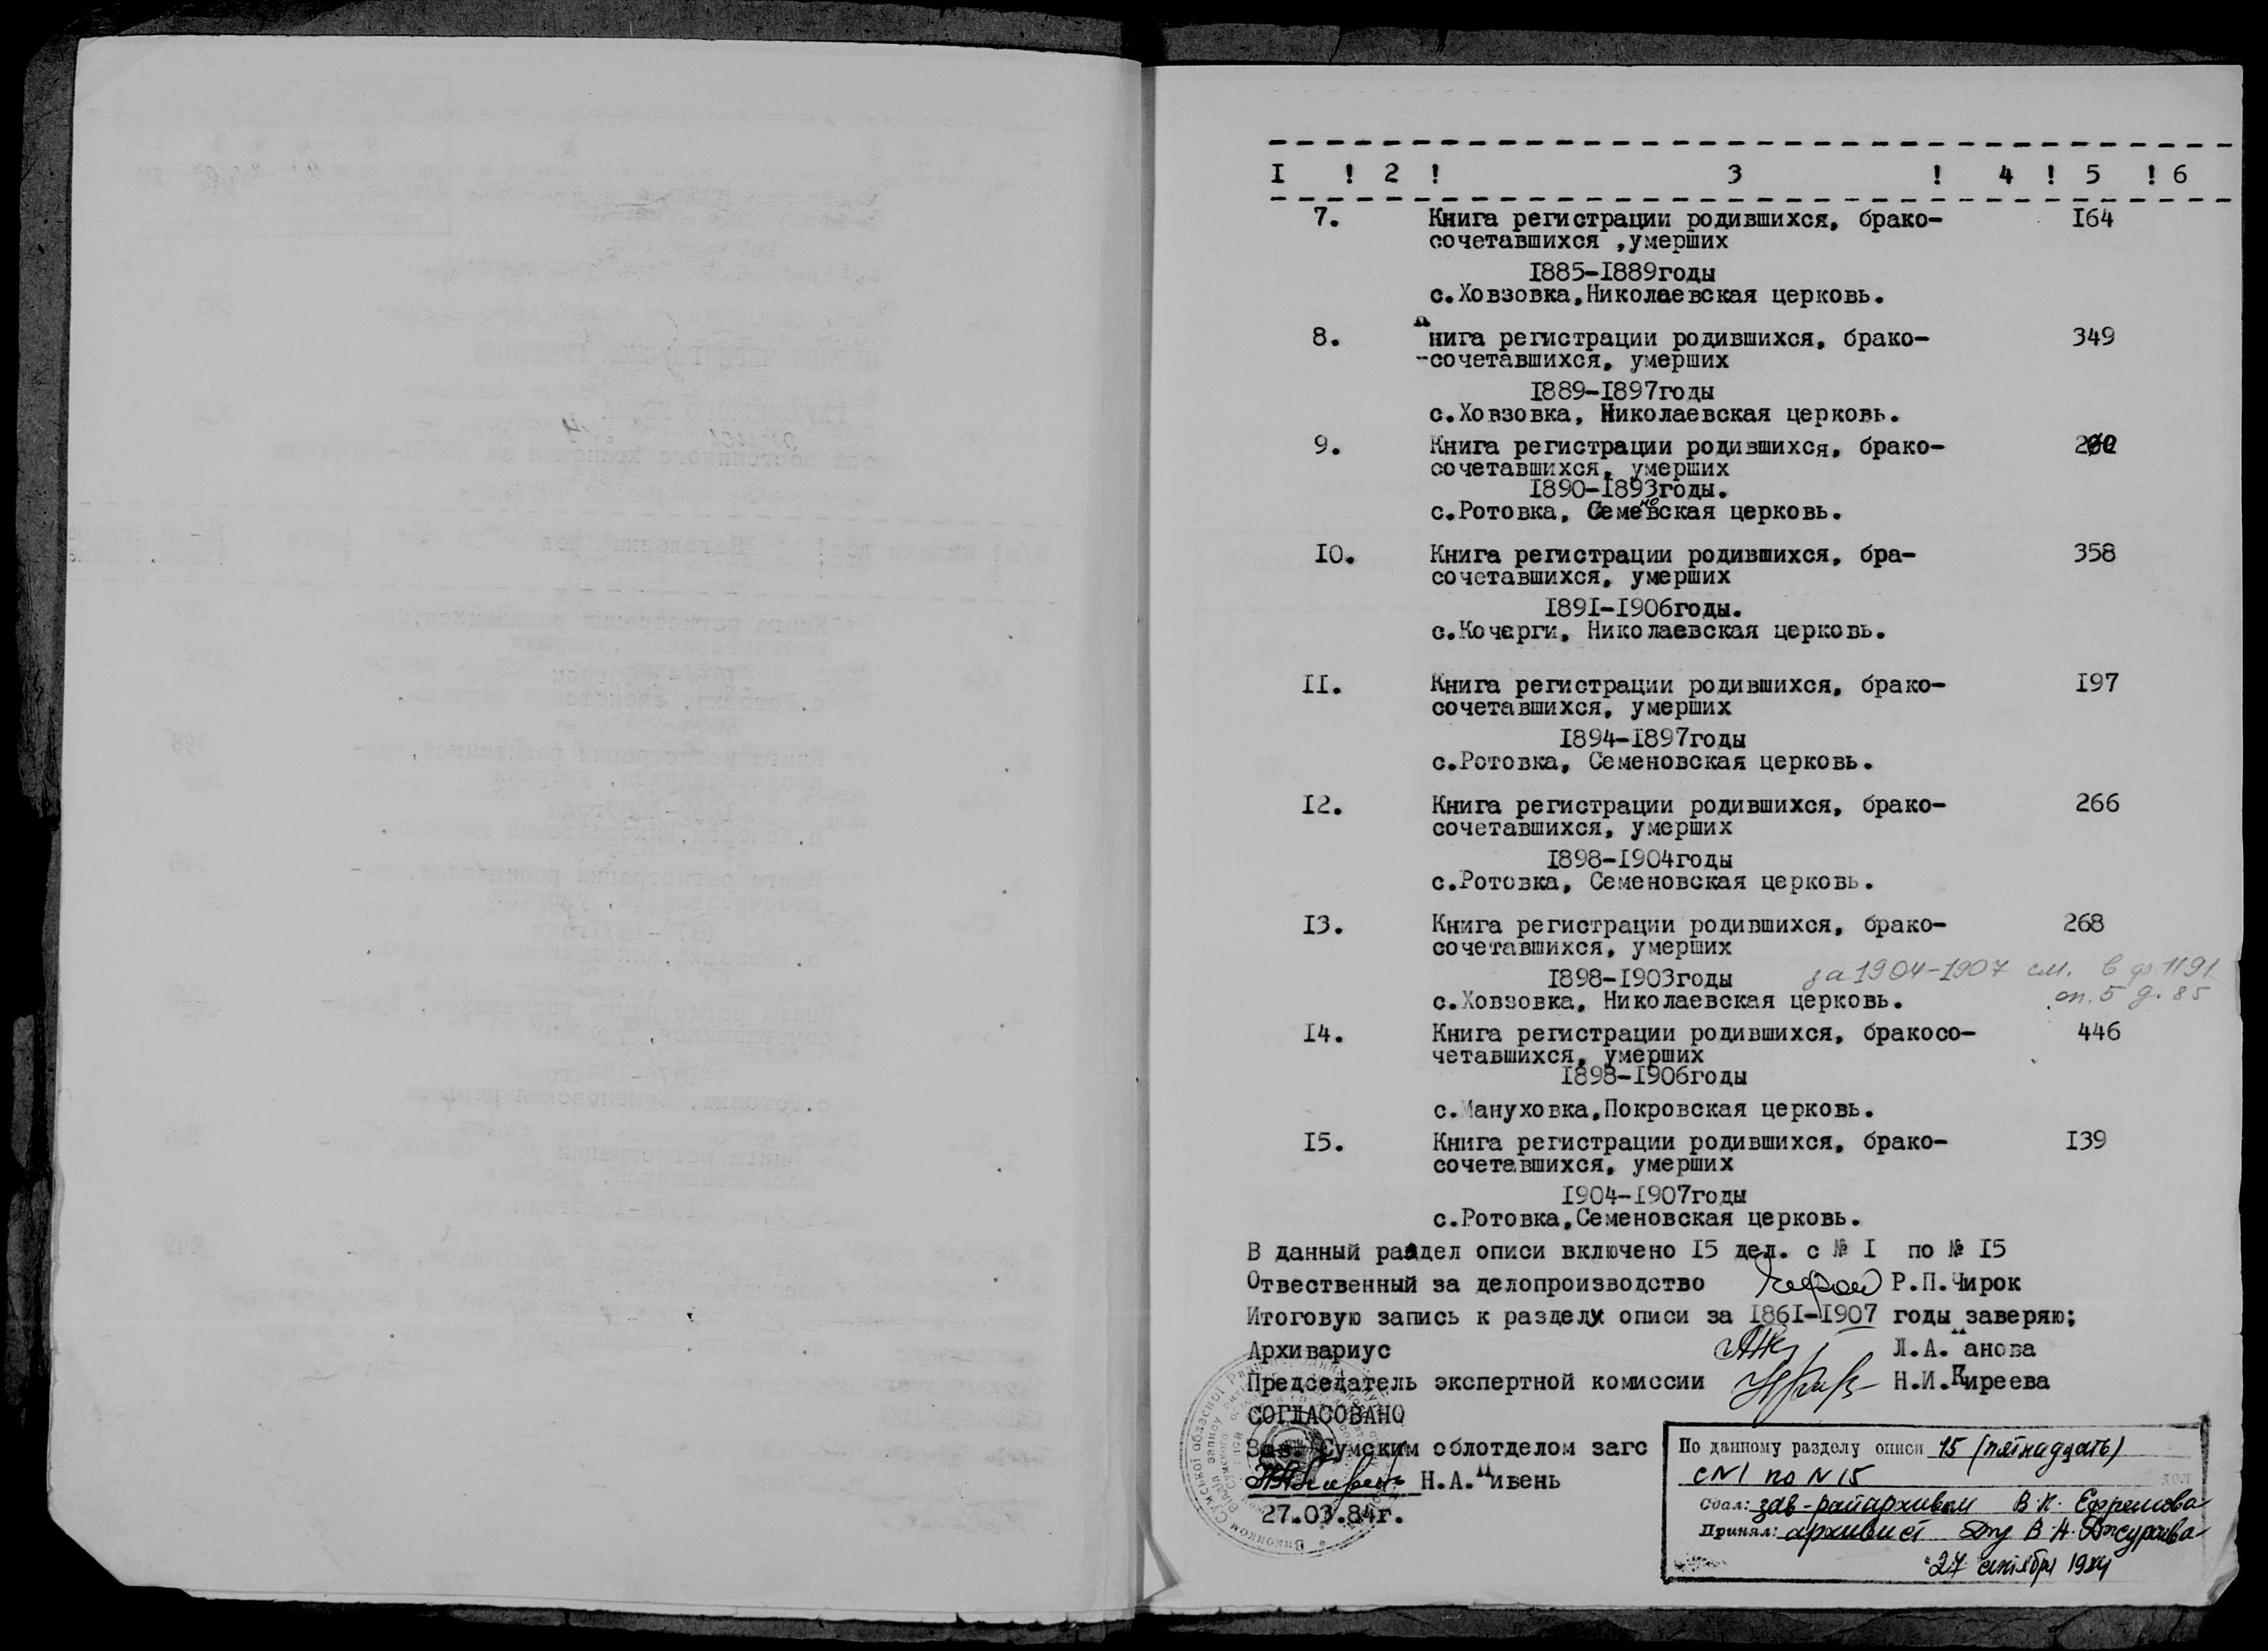 I ! 2 ! 3 ! 4 ! 5 ! 6
7. Книга регистрации родившихся, брако- I64
сочетавшихся ,умерших
I885-I889годы
с.Ховзовка,Николаевская церковь.
8. Книга регистрации родившихся, брако- 349
-сочетавшихся, умерших
I889-I897годы
с.Ховзовка, Николаевская церковь.
9. Книга регистрации родившихся, брако- 200
сочетавшихся, умерших
I890-I893годы.
с.Ротовка, Семеновская церковь.
IO. Книга регистрации родившихся, бра- 358
сочетавшихся, умерших
I89I-I906годы.
с.Кочерги, Николаевская церковь.
II. Книга регистрации родившихся, брако- I97
сочетавшихся, умерших
I894-I897годы
с.Ротовка, Семеновская церковь.
I2. Книга регистрации родившихся, брако- 266
сочетавшихся, умерших
I898-I904годы
с.Ротовка, Семеновская церковь.
I3. Книга регистрации родившихся, брако- 268
сочетавшихся, умерших
I898-I903годы за 1904-1907 см. в ф 1191
с.Ховзовка, Николаевская церковь. оп. 5 д. 85
I4. Книга регистрации родившихся, бракосо- 446
четавшихся, умерших
I898-I906годы
с.Мануховка,Покровская церковь.
I5. Книга регистрации родившихся, брако- I39
сочетавшихся, умерших
I904-I907годы
с.Ротовка,Семеновская церковь.
В данный раздел описи включено I5 дел. с № I по № I5
Отвественный за делопроизводство Р.П.Чирок
Итоговую запись к разделу описи за I86I-I907 годы заверяю;
Архивариус Л.А. анова
Председатель экспертной комиссии Н.И.Киреева
СОГЛАСОВАНО
Зав. Сумским облотделом загс
Н.А. ивень
27.03.84г.
По данному разделу описи 15 (пятнадцать)
с N1 по N 15 дел
Сдал: зав-райархивом В.К. Ефремова
Принял: архивист В.А. Джураева
27 октября 1984